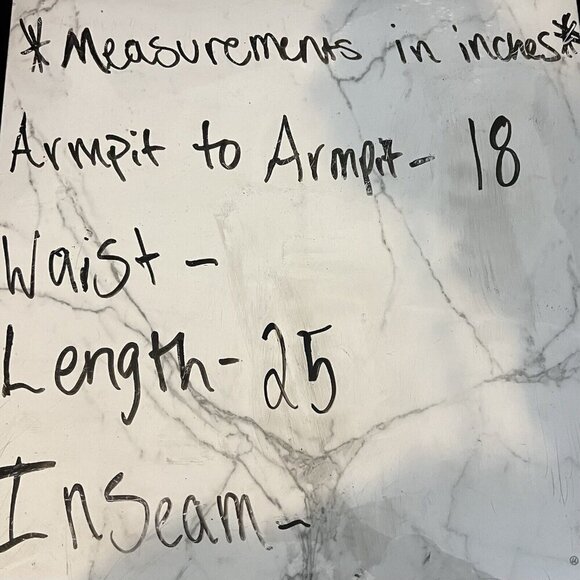 *Measurements in inches*
Armpit to Armpit- 18
Waist -
Length- 25
Inseam -